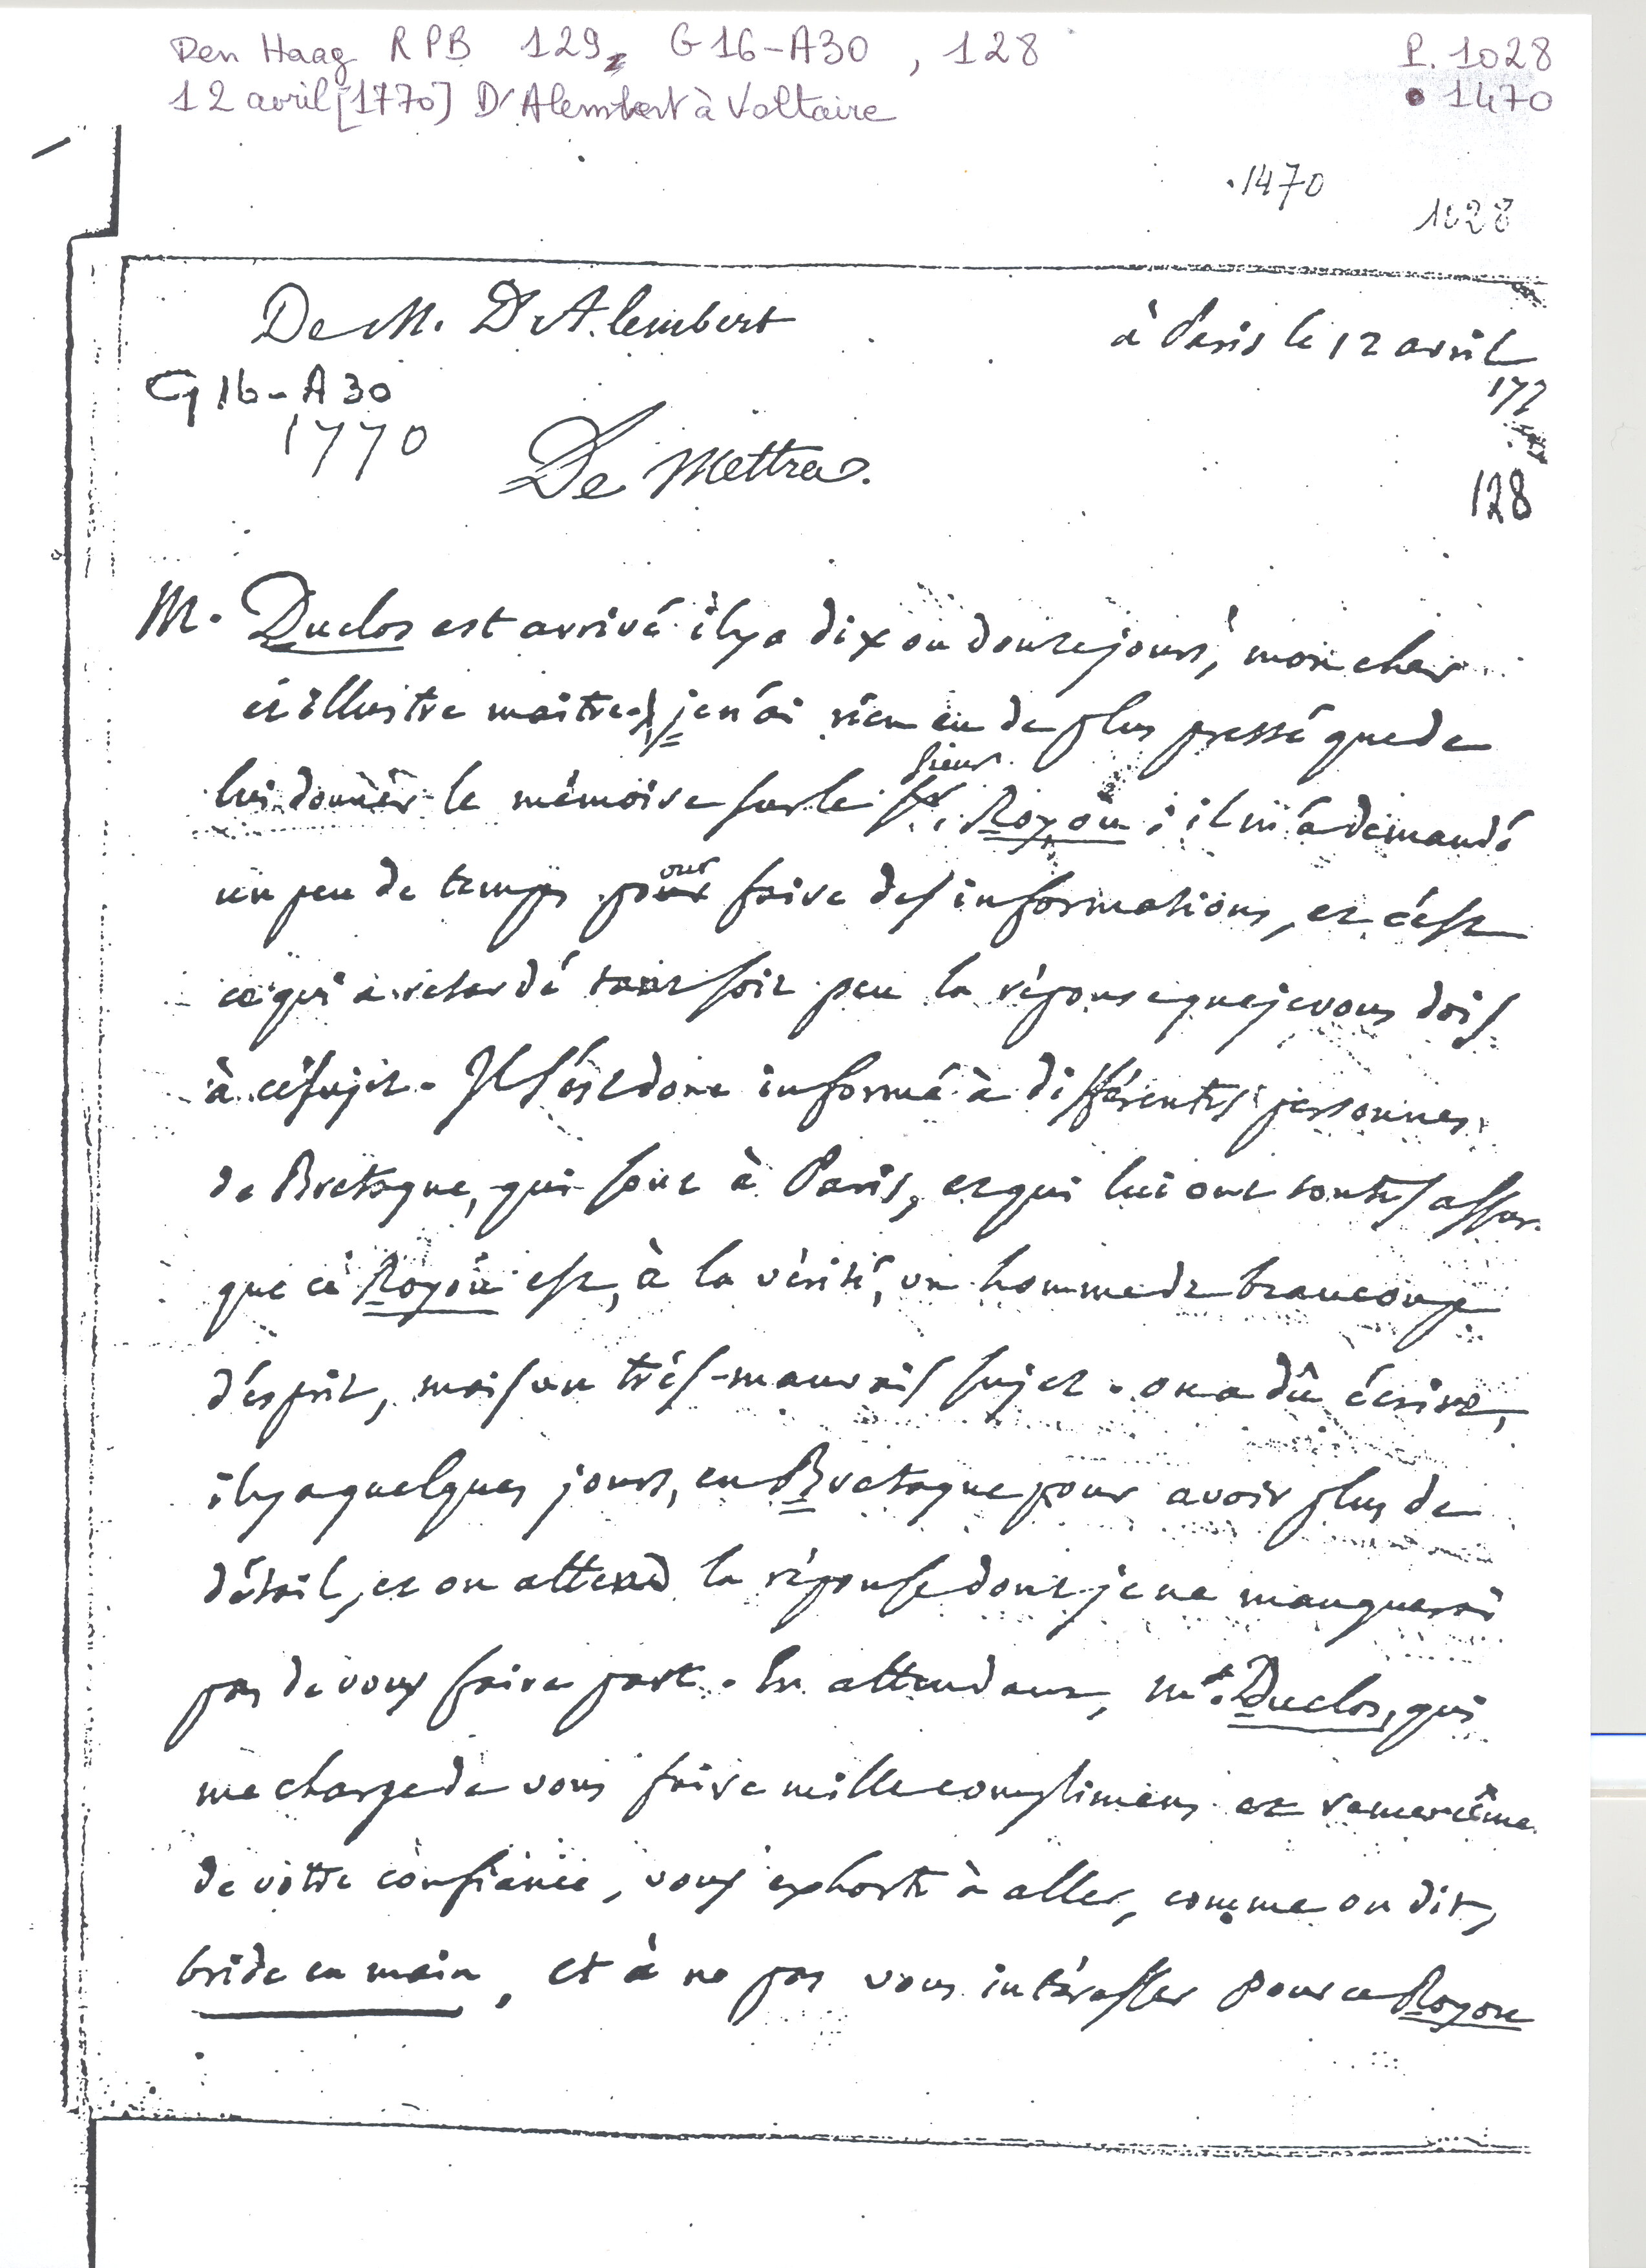 Den Haag RPB 129, G16-A30, 128
P. 1028
12 avril [1770] D'Alembert à Voltaire
1470
.1470
1028
De M. D'Alembert
à Paris le 12 avril
177
G16-A30
1770
De Mettra.
128
M. Duclos est arrivé il y a dix ou douze jours, mon cher
et illustre maitre; je n'ai rien eu de plus pressé que de
lui donner le mémoire sur le sieur Royou; il m'a demandé
un peu de temps pour faire des informations, et c'est
ce qui a retardé tant soit peu la réponse que je vous dois
à ce sujet. Il s'est donc informé à différentes personnes
de Bretagne, qui sont à Paris, et qui lui ont toutes assur
que ce Royou est, à la vérité, un homme de beaucoup
d'esprit, mais un très-mauvais sujet. on a dû écrire,
il y a quelques jours, en Bretagne pour avoir plus de
détail, et on attend la réponse dont je ne manquerai
pas de vous faire part. En attendant, Mr. Duclos, qui
me charge de vous faire mille complimens et remercime
de votre confiance, vous exhorte à aller, comme on dit,
bride en main, et à ne pas vous intéresser pour ce Royou